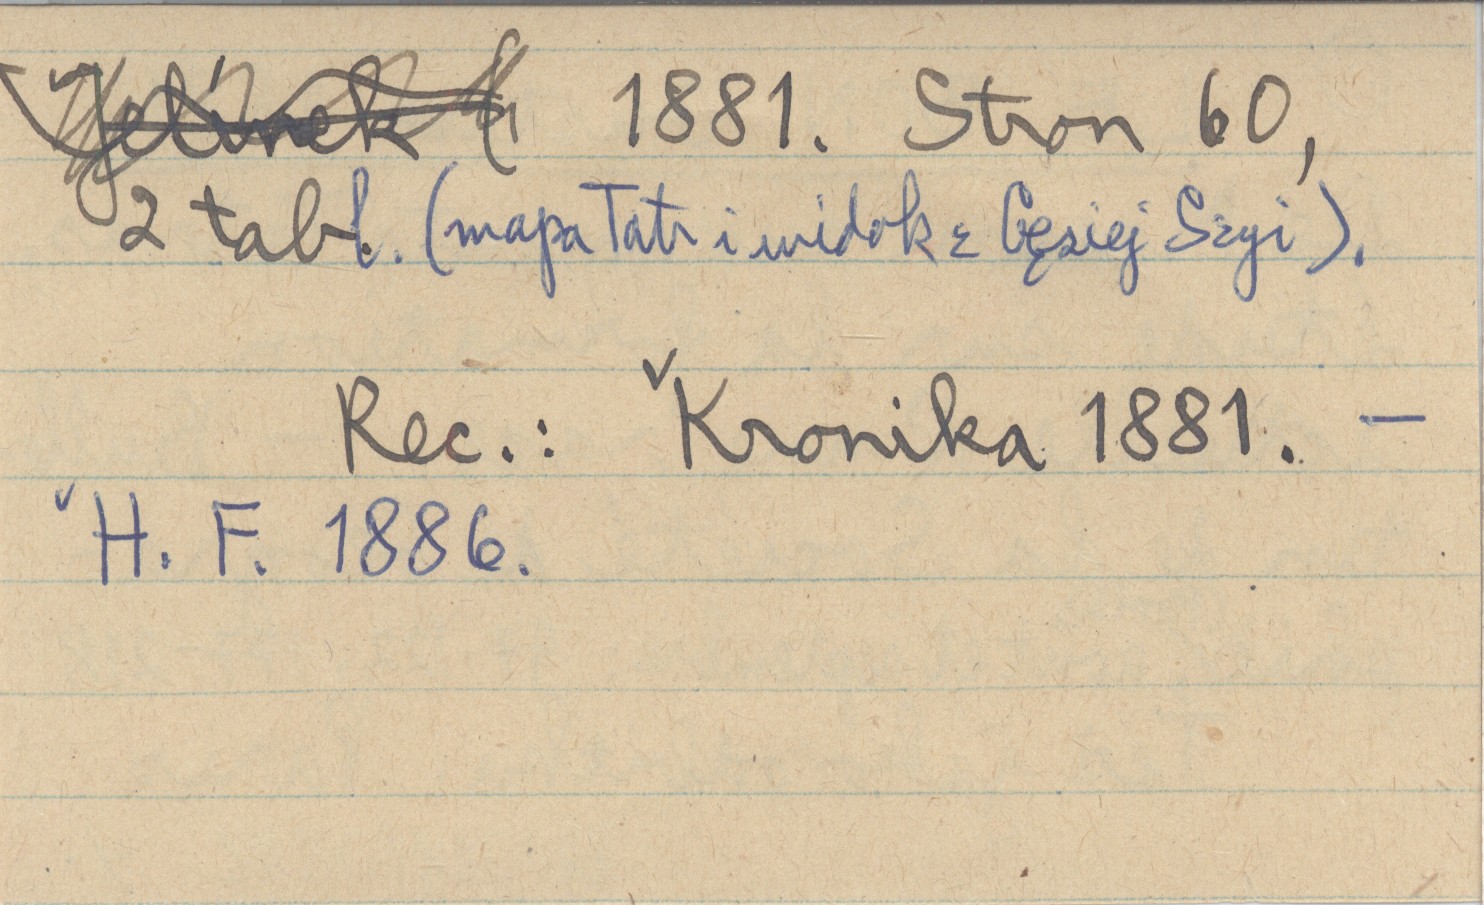 Jelínek 1881. Stron 60,
2 tabl. (mapa Tatr i widok z Gęsiej Szyi).
Rec.: ˇKronika 1881. —
ˇH. F. 1886.